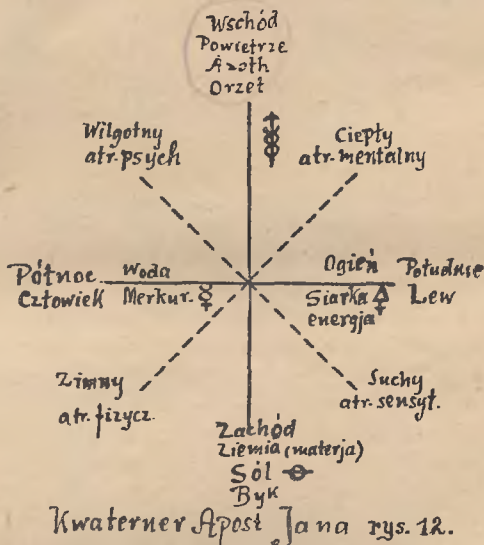 Wschód
Powietrze
Azoth
Orzeł
Wilgotny
atr. psych
Ciepły
atr. mentalny
Północ
Człowiek
Woda
Merkur. ☿
Ogień
Siarka 🜍
energja
Południe
Lew
Zimny
atr. fizycz.
Suchy
atr. sensyt.
Zachód
Ziemia (materja)
Sól
Byk
Kwaterner Apost. Jana rys. 12.